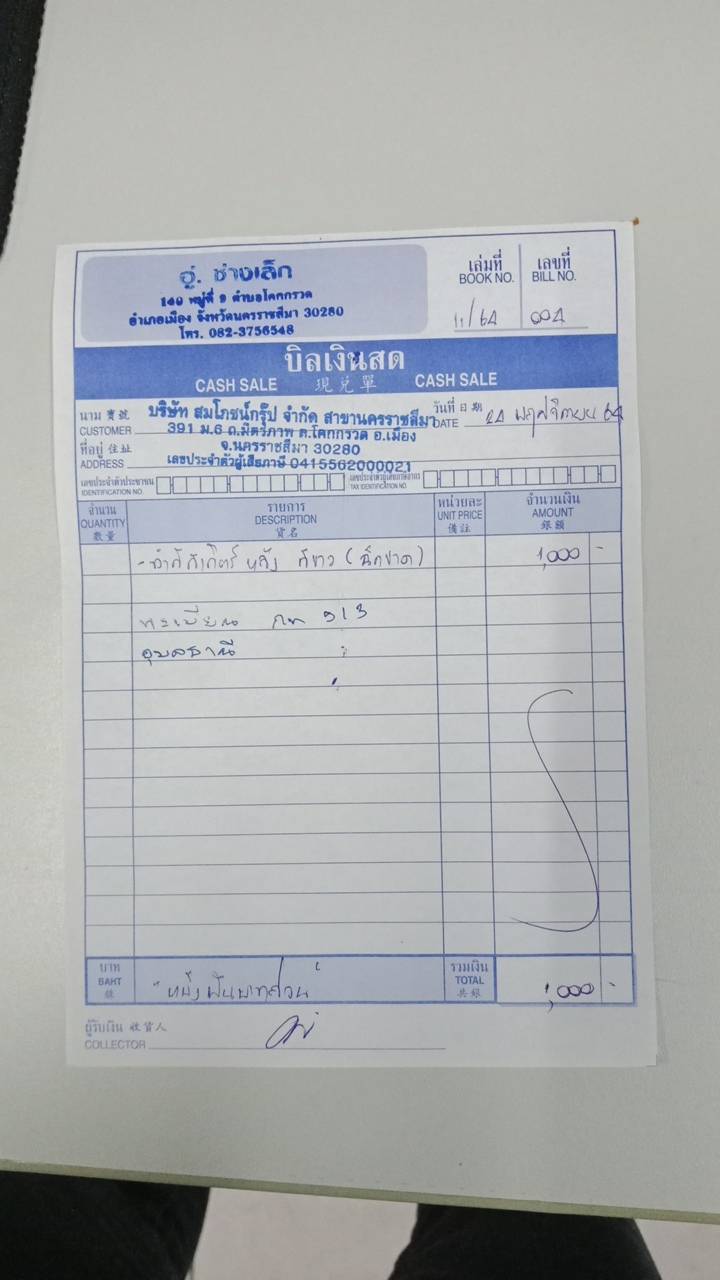 อู่. ช่างเล็ก
140 หมู่ที่ 9 ตำบลโคกกรวด
อำเภอเมือง จังหวัดนครราชสีมา 30280
โทร. 082-3756548
เล่มที่ เลขที่
BOOK NO. BILL NO.
11/64 004
บิลเงินสด
CASH SALE 現兌單 CASH SALE
นาม 寶號 บริษัท สมโภชน์กรุ๊ป จำกัด สาขานครราชสีมา วันที่ 日期
CUSTOMER 391 ม.6 ถ.มิตรภาพ ต.โคกกรวด อ.เมือง DATE 24 พฤศจิกายน 64
ที่อยู่ 住址 จ.นครราชสีมา 30280
ADDRESS เลขประจำตัวผู้เสียภาษี 0415562000021
เลขประจำตัวประชาชน เลขประจำตัวผู้เสียภาษีอากร
IDENTIFICATION NO. TAX IDENTIFICATION NO.
จำนวน รายการ หน่วยละ จำนวนเงิน
QUANTITY DESCRIPTION UNIT PRICE AMOUNT
數量 貨名 備註 銀額
หลัง (ฉีกขาด) 1,000 -
ทะเบียน 913
อุบลธานี
บาท รวมเงิน
BAHT "หนึ่งพันบาทถ้วน" TOTAL 1,000 -
錢 共銀
ผู้รับเงิน 收貨人
COLLECTOR